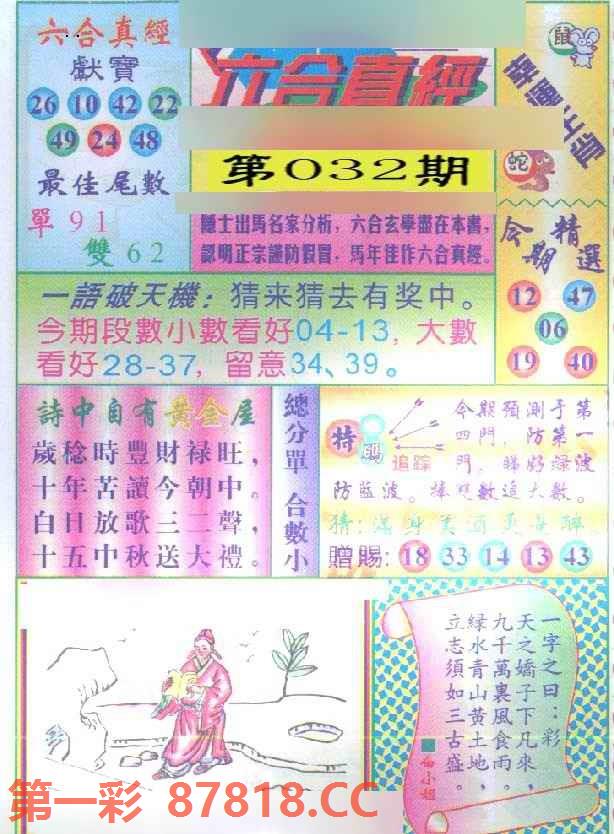 六合真經
獻寶
26 10 42 22
49 24 48
最佳尾數
單 9 1
雙 6 2
六合真經
第032期
隱士出馬名家分析，六合玄學盡在本書，
認明正宗謹防假冒，馬年佳作六合真經。
鼠
蛇
今期精選
12 47
06
19 40
一語破天機：猜来猜去有奖中。
今期段數小數看好04-13，大數
看好28-37，留意34、39。
詩中自有黃金屋
歲稔時豐財禄旺，
十年苦讀今朝中。
白日放歌三二聲，
十五中秋送大禮。
總分單 合數小
特碼
追踪
今期預測于第
四門，防第一
門，睇好绿波
防蓝波。捧雙數追大數。
贈賜: 18 33 14 13 43
一字之曰：彩
天之嬌子下凡來，
九千萬裏風食雨。
緑水青山黃土地，
立志須如三古盛。
第一彩 87818.CC